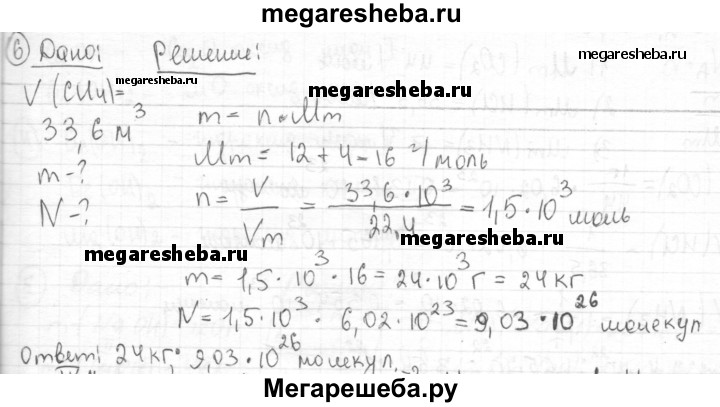 megaresheba.ru
6) Дано: Решение:
megaresheba.ru
megaresheba.ru
V(CH4)=
megaresheba.ru
33,6 м³
m = n·Mm
m-?
Mm = 12+4=16 г/моль
N-?
n = V/Vm = 33,6·10³/22,4 = 1,5·10³ моль
megaresheba.ru
megaresheba.ru
m = 1,5·10³·16 = 24·10³ г = 24 кг
N = 1,5·10³ · 6,02·10²³ = 9,03·10²⁶ молекул
Ответ: 24 кг; 9,03·10²⁶ молекул.
Мегарешеба.ру